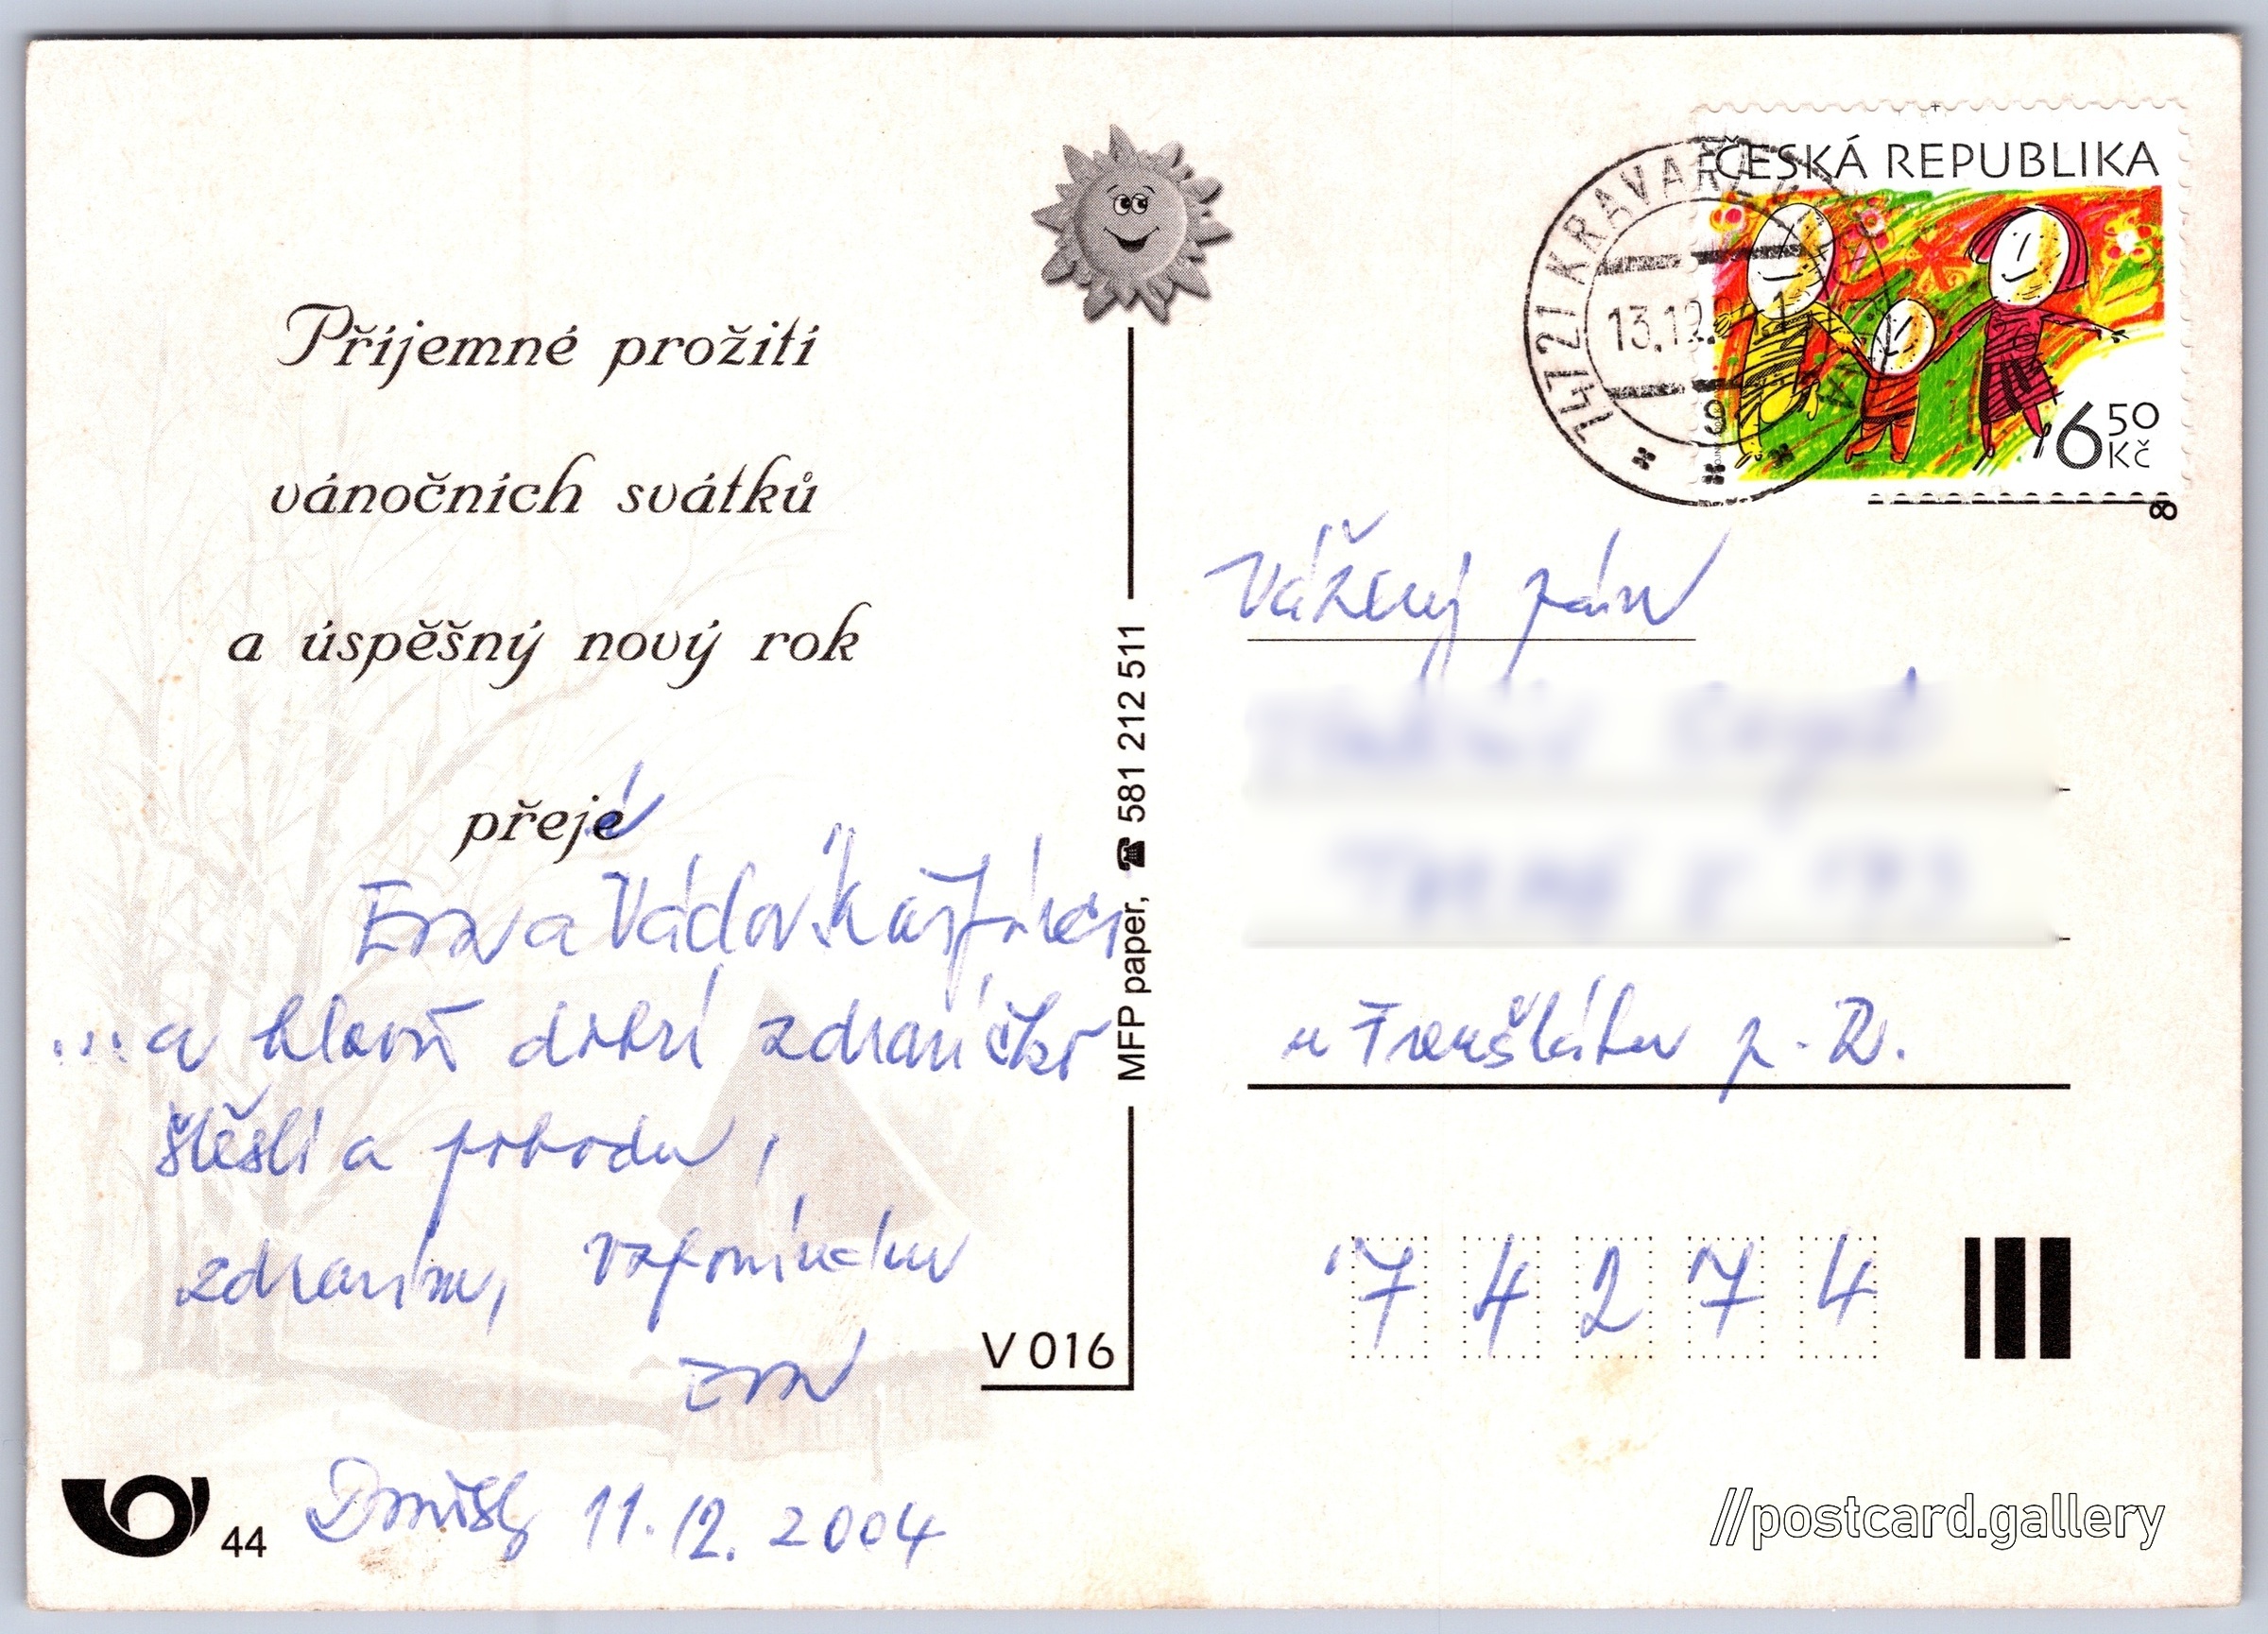 Příjemné prožití
vánočních svátků
a úspěšný nový rok
přeje
a Václav
... a hlavně dobré zdravíčko
štěstí a pohodu,
zdravím, vzpomínku
11.12. 2004
44
V 016
MFP paper, ☎ 581 212 511
ČESKÁ REPUBLIKA
6 50 Kč
747 21 KRAVAŘE
13.12.
8
Vážený pán
p. R.
7 4 2 7 4
//postcard.gallery